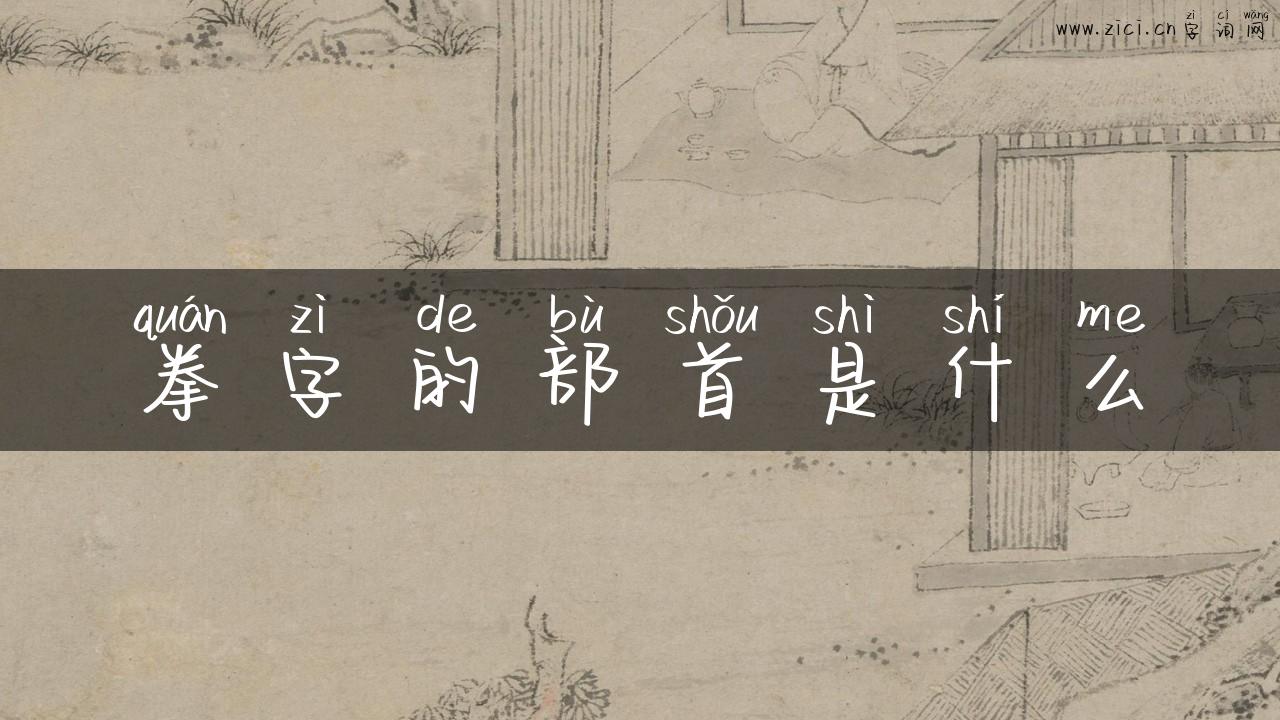 zì cí wǎng
www.zici.cn字词网
quán zì de bù shǒu shì shí me
拳字的部首是什么